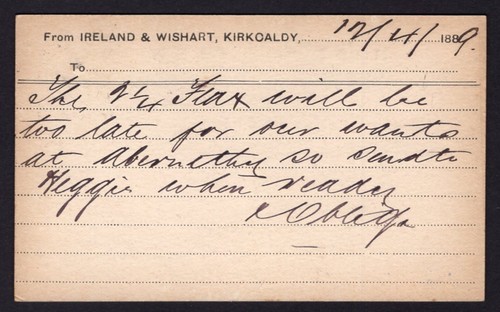 From IRELAND & WISHART, KIRKCALDY, 12/4/ 1889.
To
The Flax will be
too late for our wants
at Abernethy so send to
Heggie when ready
& Oblige